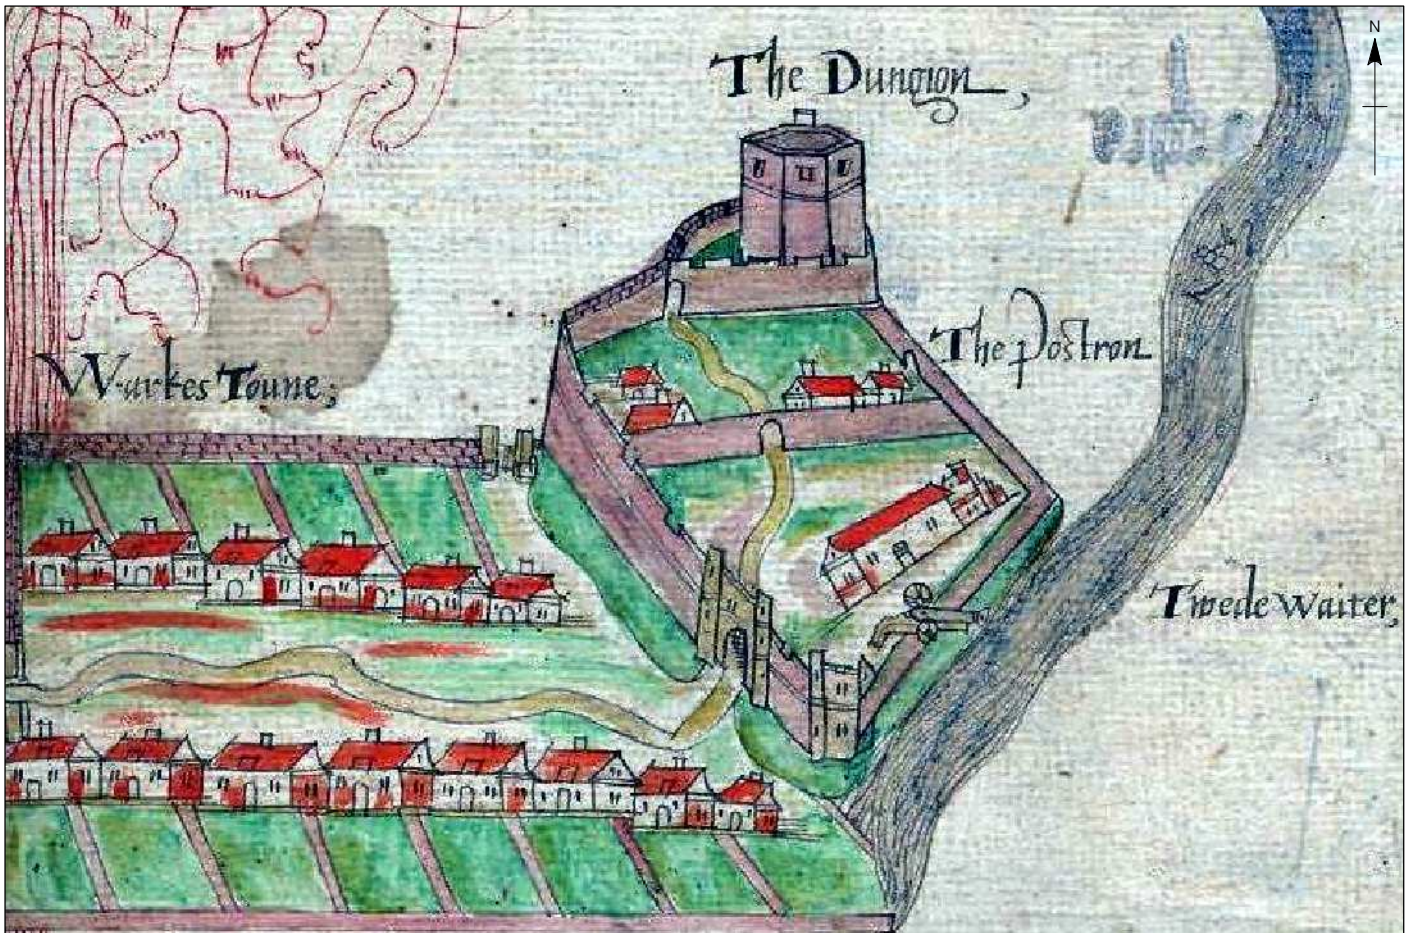 N
The Dungion,
The Postron
Warkes Toune;
Twede Waiter,